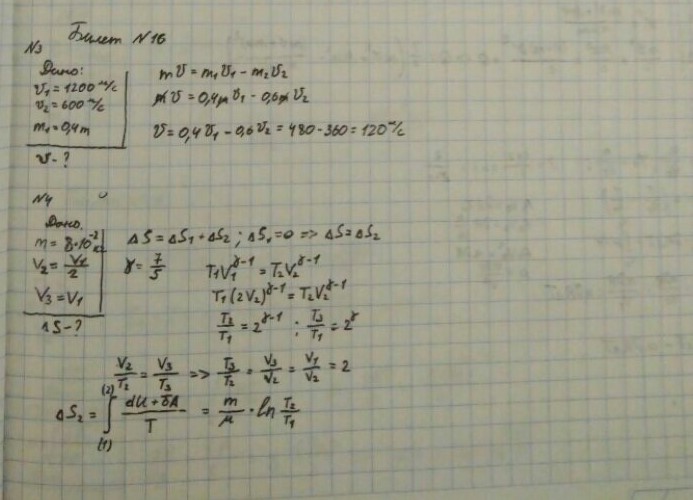 Билет №16
№3
Дано:
v₁ = 1200 м/с
v₂ = 600 м/с
m₁ = 0,4m
v - ?
mv = m₁v₁ - m₂v₂
mv = 0,4mv₁ - 0,6mv₂
v = 0,4v₁ - 0,6v₂ = 480 - 360 = 120 м/с
№4
Дано:
m = 8·10⁻² кг
V₂ = V₁/2
V₃ = V₁
ΔS - ?
ΔS = ΔS₁ + ΔS₂ ; ΔS₁ = 0 => ΔS = ΔS₂
γ = 7/5
T₁V₁^(γ-1) = T₂V₂^(γ-1)
T₁(2V₂)^(γ-1) = T₂V₂^(γ-1)
T₂/T₁ = 2^(γ-1) ; T₃/T₁ = 2^γ
V₂/T₂ = V₃/T₃ => T₃/T₂ = V₃/V₂ = V₁/V₂ = 2
ΔS₂ = ∫₍₁₎⁽²⁾ (dU + δA)/T = m/μ · ln T₂/T₁